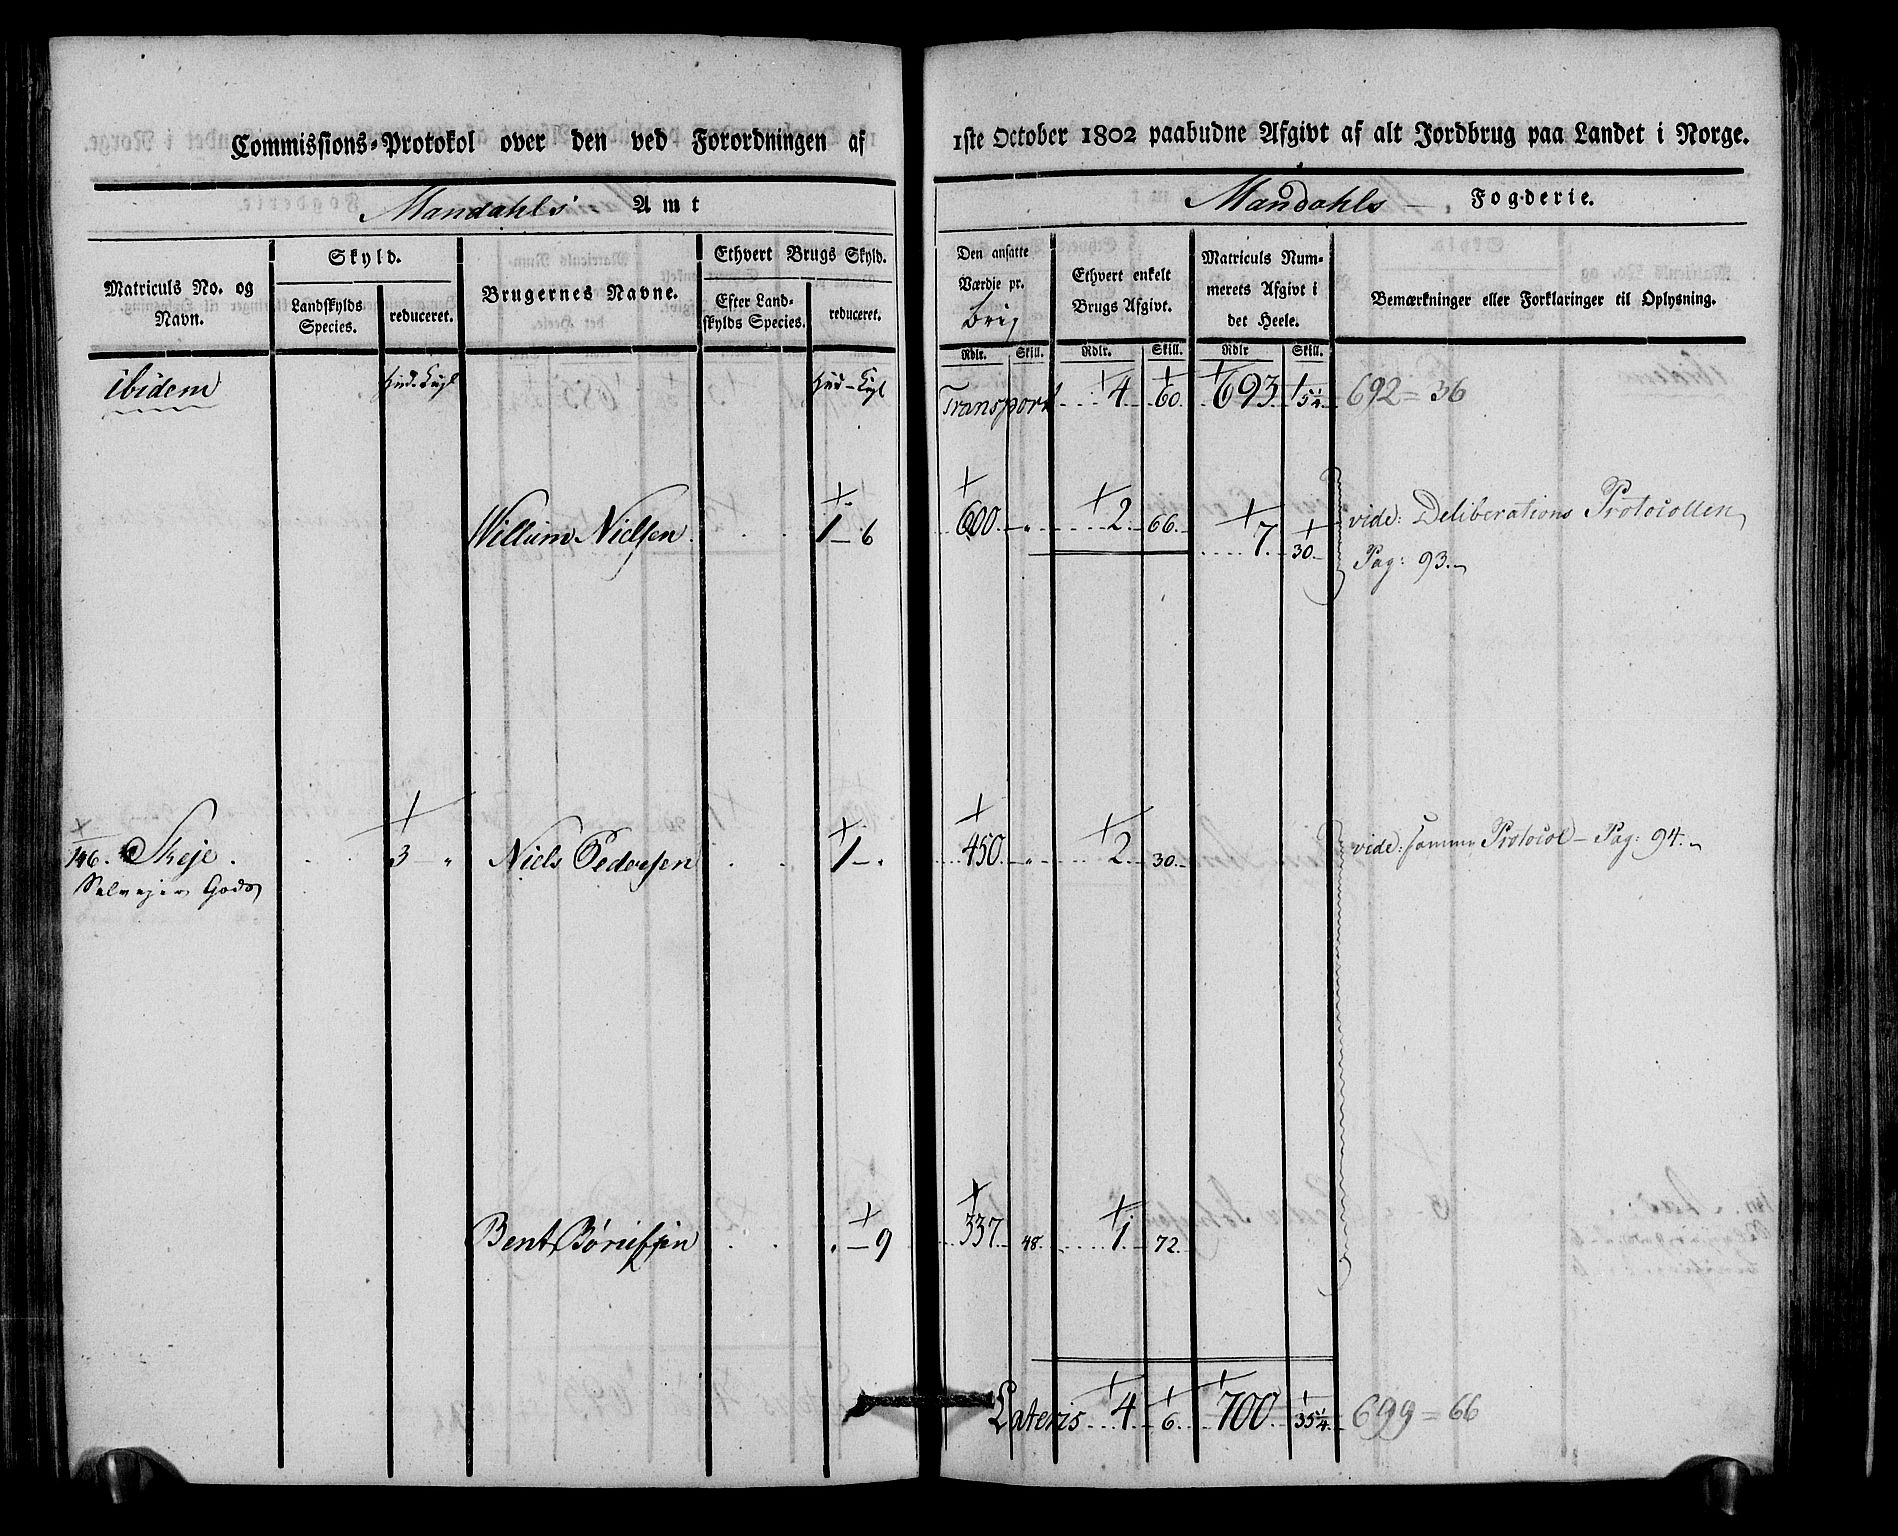 Commissions-Protokol over den ved Forordningen af 1ste October 1802 paabudne Afgivt af alt Jordbrug paa Landet i Norge.
Mandahls Amt
Mandahls Fogderie.
Matriculs No. og Navn.
Skyld.
Landskylds Species.
reduceret.
Brugernes Navne.
Ethvert Brugs Skyld.
Efter Landskylds Species.
reduceret.
Den ansatte Værdie pr.
Ethvert enkelt Brugs Afgivt.
Matriculs Nummerets Afgivt i det Heele.
Bemærkninger eller Forklaringer til Oplysning.
Rdlr. Skill. Rdlr. Skill. Rdlr Skill.
ibidem Hud. Kugl Hud - Kugl Transport 4 60. 693 5¼ 692 = 36
Willum Nielsen 1 - 6 600 - „ 2 66. 7. 30. vide: Deliberations Protocollen
Pag: 93.
146. Skeje. 3 „ Niels Pedersen 1 - . 450 „ 2 30. vide: samme Protocol - Pag: 94.
Selvejer Gods
Bent 9 337 48. 1 72.
Lateris 4 6. 700 35¼ 699 = 66